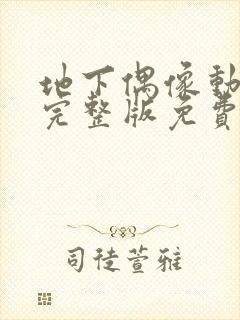 地下偶像動
完整版免費
司徒萱雅